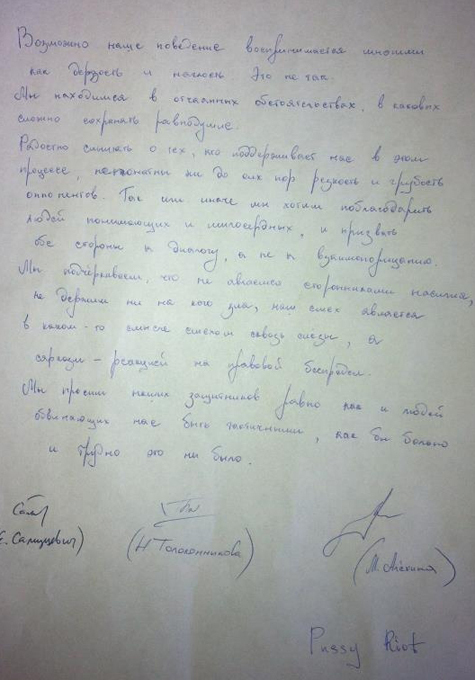 Возможно наше поведение воспринимается многими
как дерзость и наглость Это не так.
Мы находимся в отчаянных обстоятельствах, в каковых
сложно сохранять равнодушие.
Радостно слышать о тех, кто поддерживает нас в этом
процессе, непонятны мы до сих пор резкость и грубость
оппонентов. Так или иначе мы хотим поблагодарить
людей понимающих и милосердных, и призвать
обе стороны к диалогу, а не к взаимопорицанию.
Мы подчеркиваем, что не являемся сторонниками насилия,
не держим ни на кого зла, наш смех является
в каком-то смысле смехом сквозь слезы, а
сарказм – реакцией на правовой беспредел.
Мы просим наших защитников равно как и людей
обвиняющих нас быть тактичными, как бы больно
и трудно это ни было.
(Е. Самуцевич) (Н Толоконникова) (М. Алёхина)
Pussy Riot